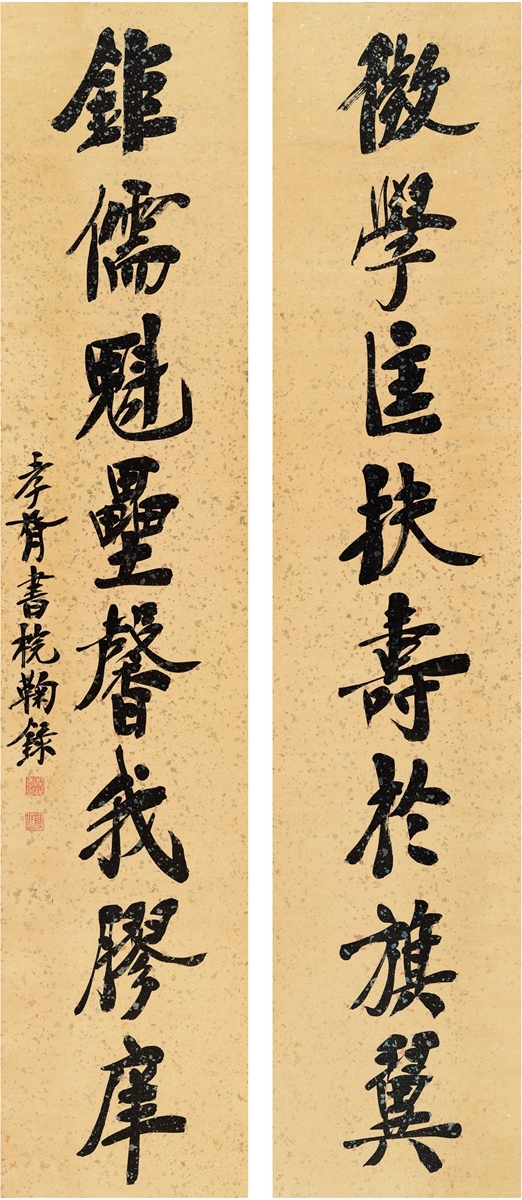 微學匡扶壽於旗翼
鉅儒魁壘馨我膠庠
孝胥書梡鞠錄